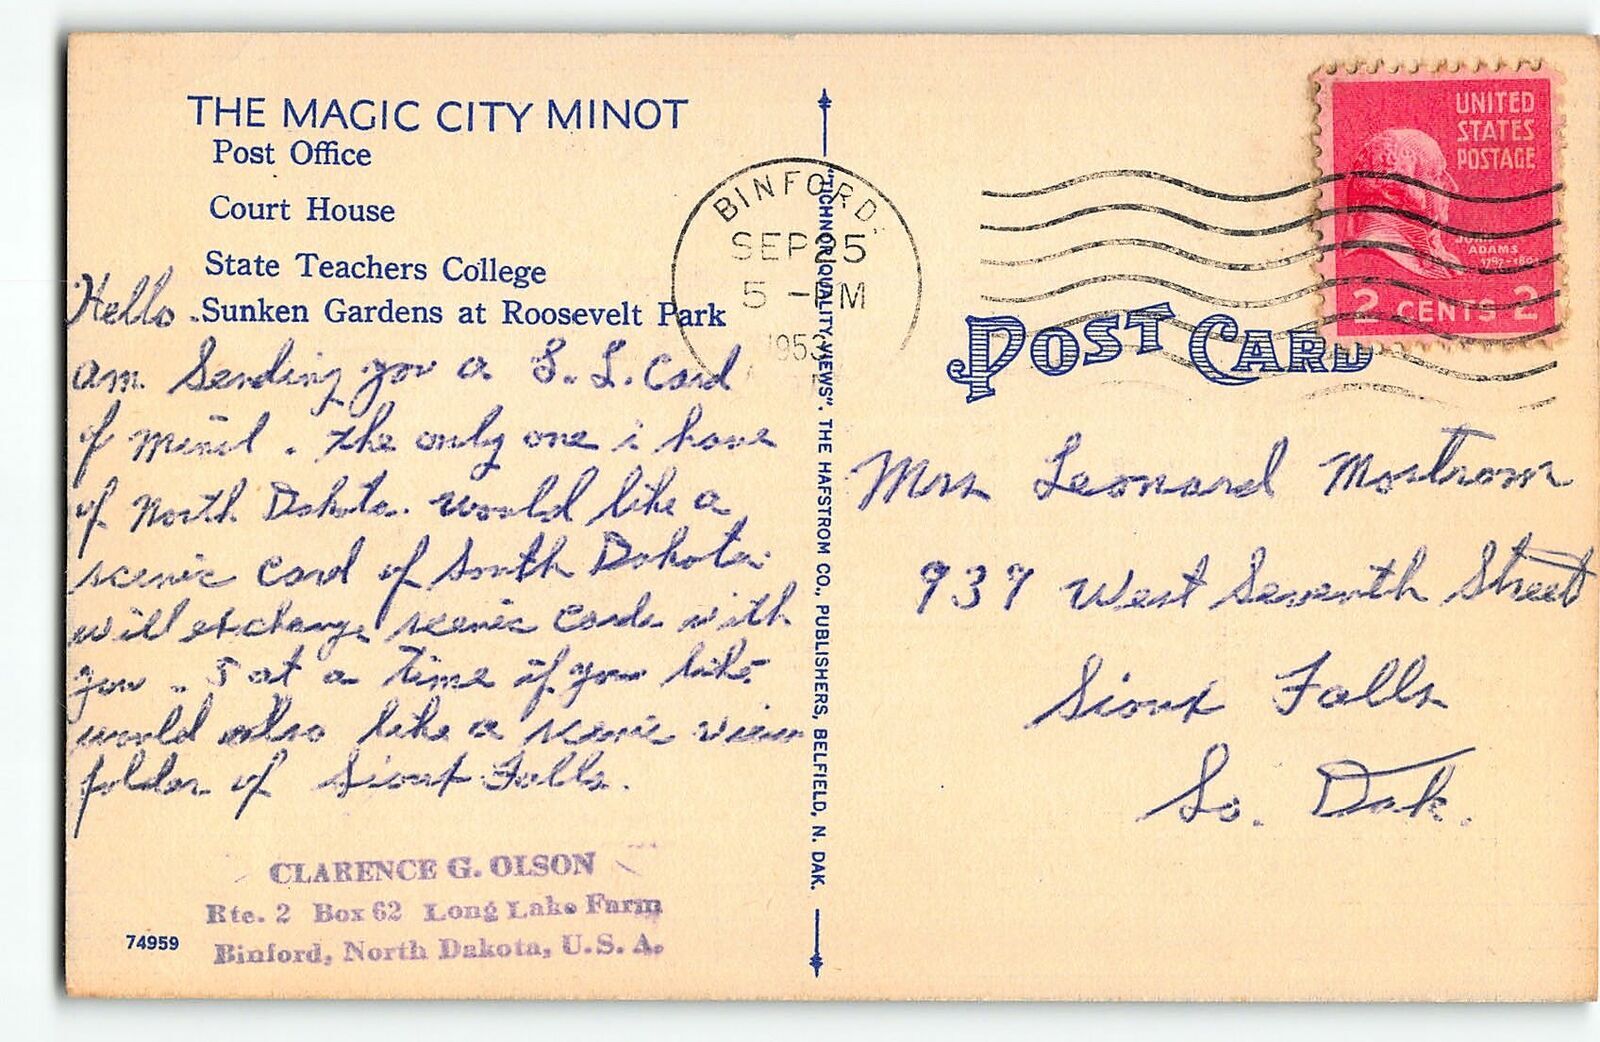 THE MAGIC CITY MINOT
Post Office
Court House
State Teachers College
Sunken Gardens at Roosevelt Park
Hello.
am Sending you a L. L. Card
of Minot. the only one i have
of North Dakota. would like a
scenic Card of South Dakota.
will exchange scenic Cards with
you. 5 at a time if you like.
would also like a scenic view
folder of Sioux Falls.
CLARENCE G. OLSON
Rte. 2 Box 62 Long Lake Farm
Binford, North Dakota, U.S.A.
74959
"TICHNOR QUALITY VIEWS". THE HAFSTROM CO., PUBLISHERS, BELFIELD, N. DAK.
BINFORD
SEP 25
5 - PM
1953
UNITED
STATES
POSTAGE
JOHN
ADAMS
1797-1801
2 CENTS 2
POST CARD
Mrs Leonard Mostrom
937 West Seventh Street
Sioux Falls
So. Dak.